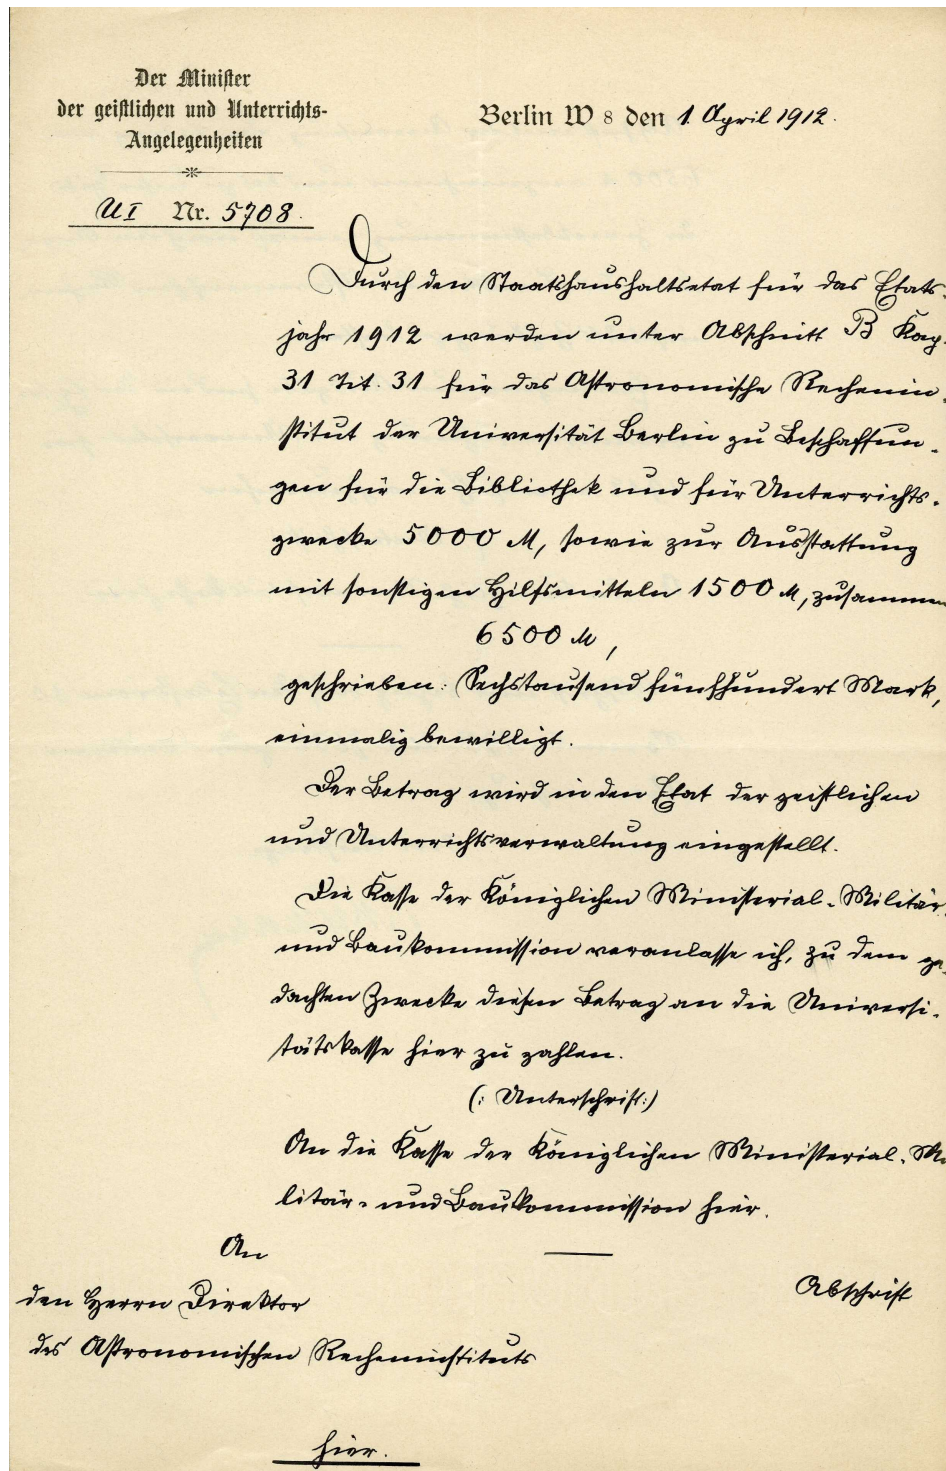 Der Minister
der geistlichen und Unterrichts-
Angelegenheiten
Berlin W 8 den 1. April 1912.
U I Nr. 5708.
Durch den Staatshaushaltsetat für das Etats-
jahr 1912 werden unter Abschnitt B Kap.
31 Tit. 31 für das Astronomische Rechenin-
stitut der Universität Berlin zu Beschaffun-
gen für die Bibliothek und für Unterrichts-
zwecke 5000 M, sowie zur Ausstattung
mit sonstigen Hilfsmitteln 1500 M, zusammen
6500 M,
geschrieben: Sechstausend fünfhundert Mark,
einmalig bewilligt.
Der Betrag wird in den Etat der geistlichen
und Unterrichtsverwaltung eingestellt.
Die Kasse der Königlichen Ministerial-Militär-
und Baukommission veranlasse ich, zu dem ge-
dachten Zwecke diesen Betrag an die Universi-
tätskasse hier zu zahlen.
(: Unterschrift :)
An die Kasse der Königlichen Ministerial-Mi
litär- und Baukommission hier.
An
den Herrn Direktor
des Astronomischen Recheninstituts
hier.
Abschrift